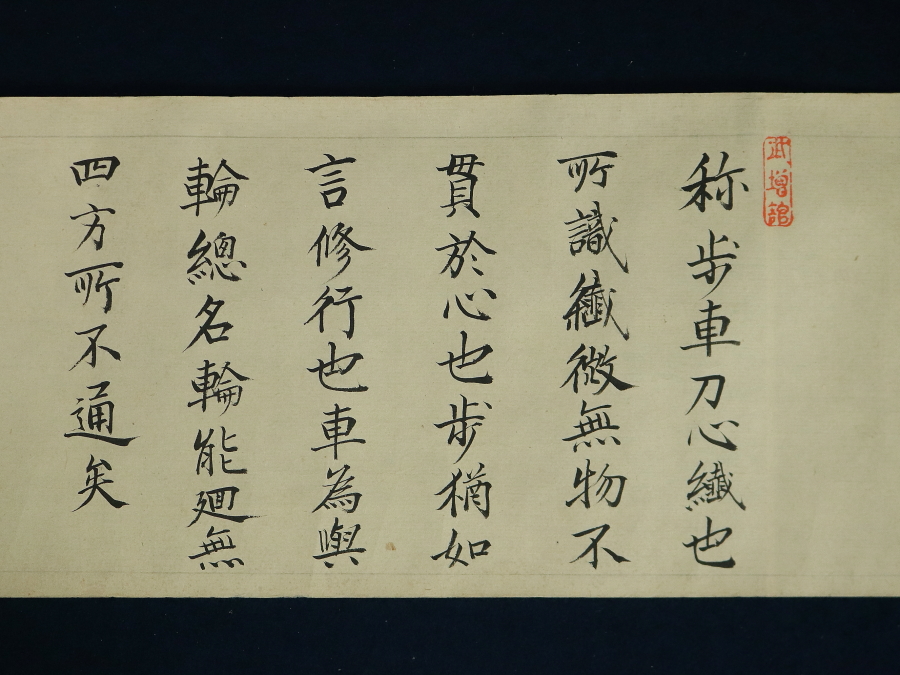 称步車刀心纖也
所識纖微無物不
貫於心也步猶如
言修行也車為輿
輪總名輪能廻無
四方所不通矣